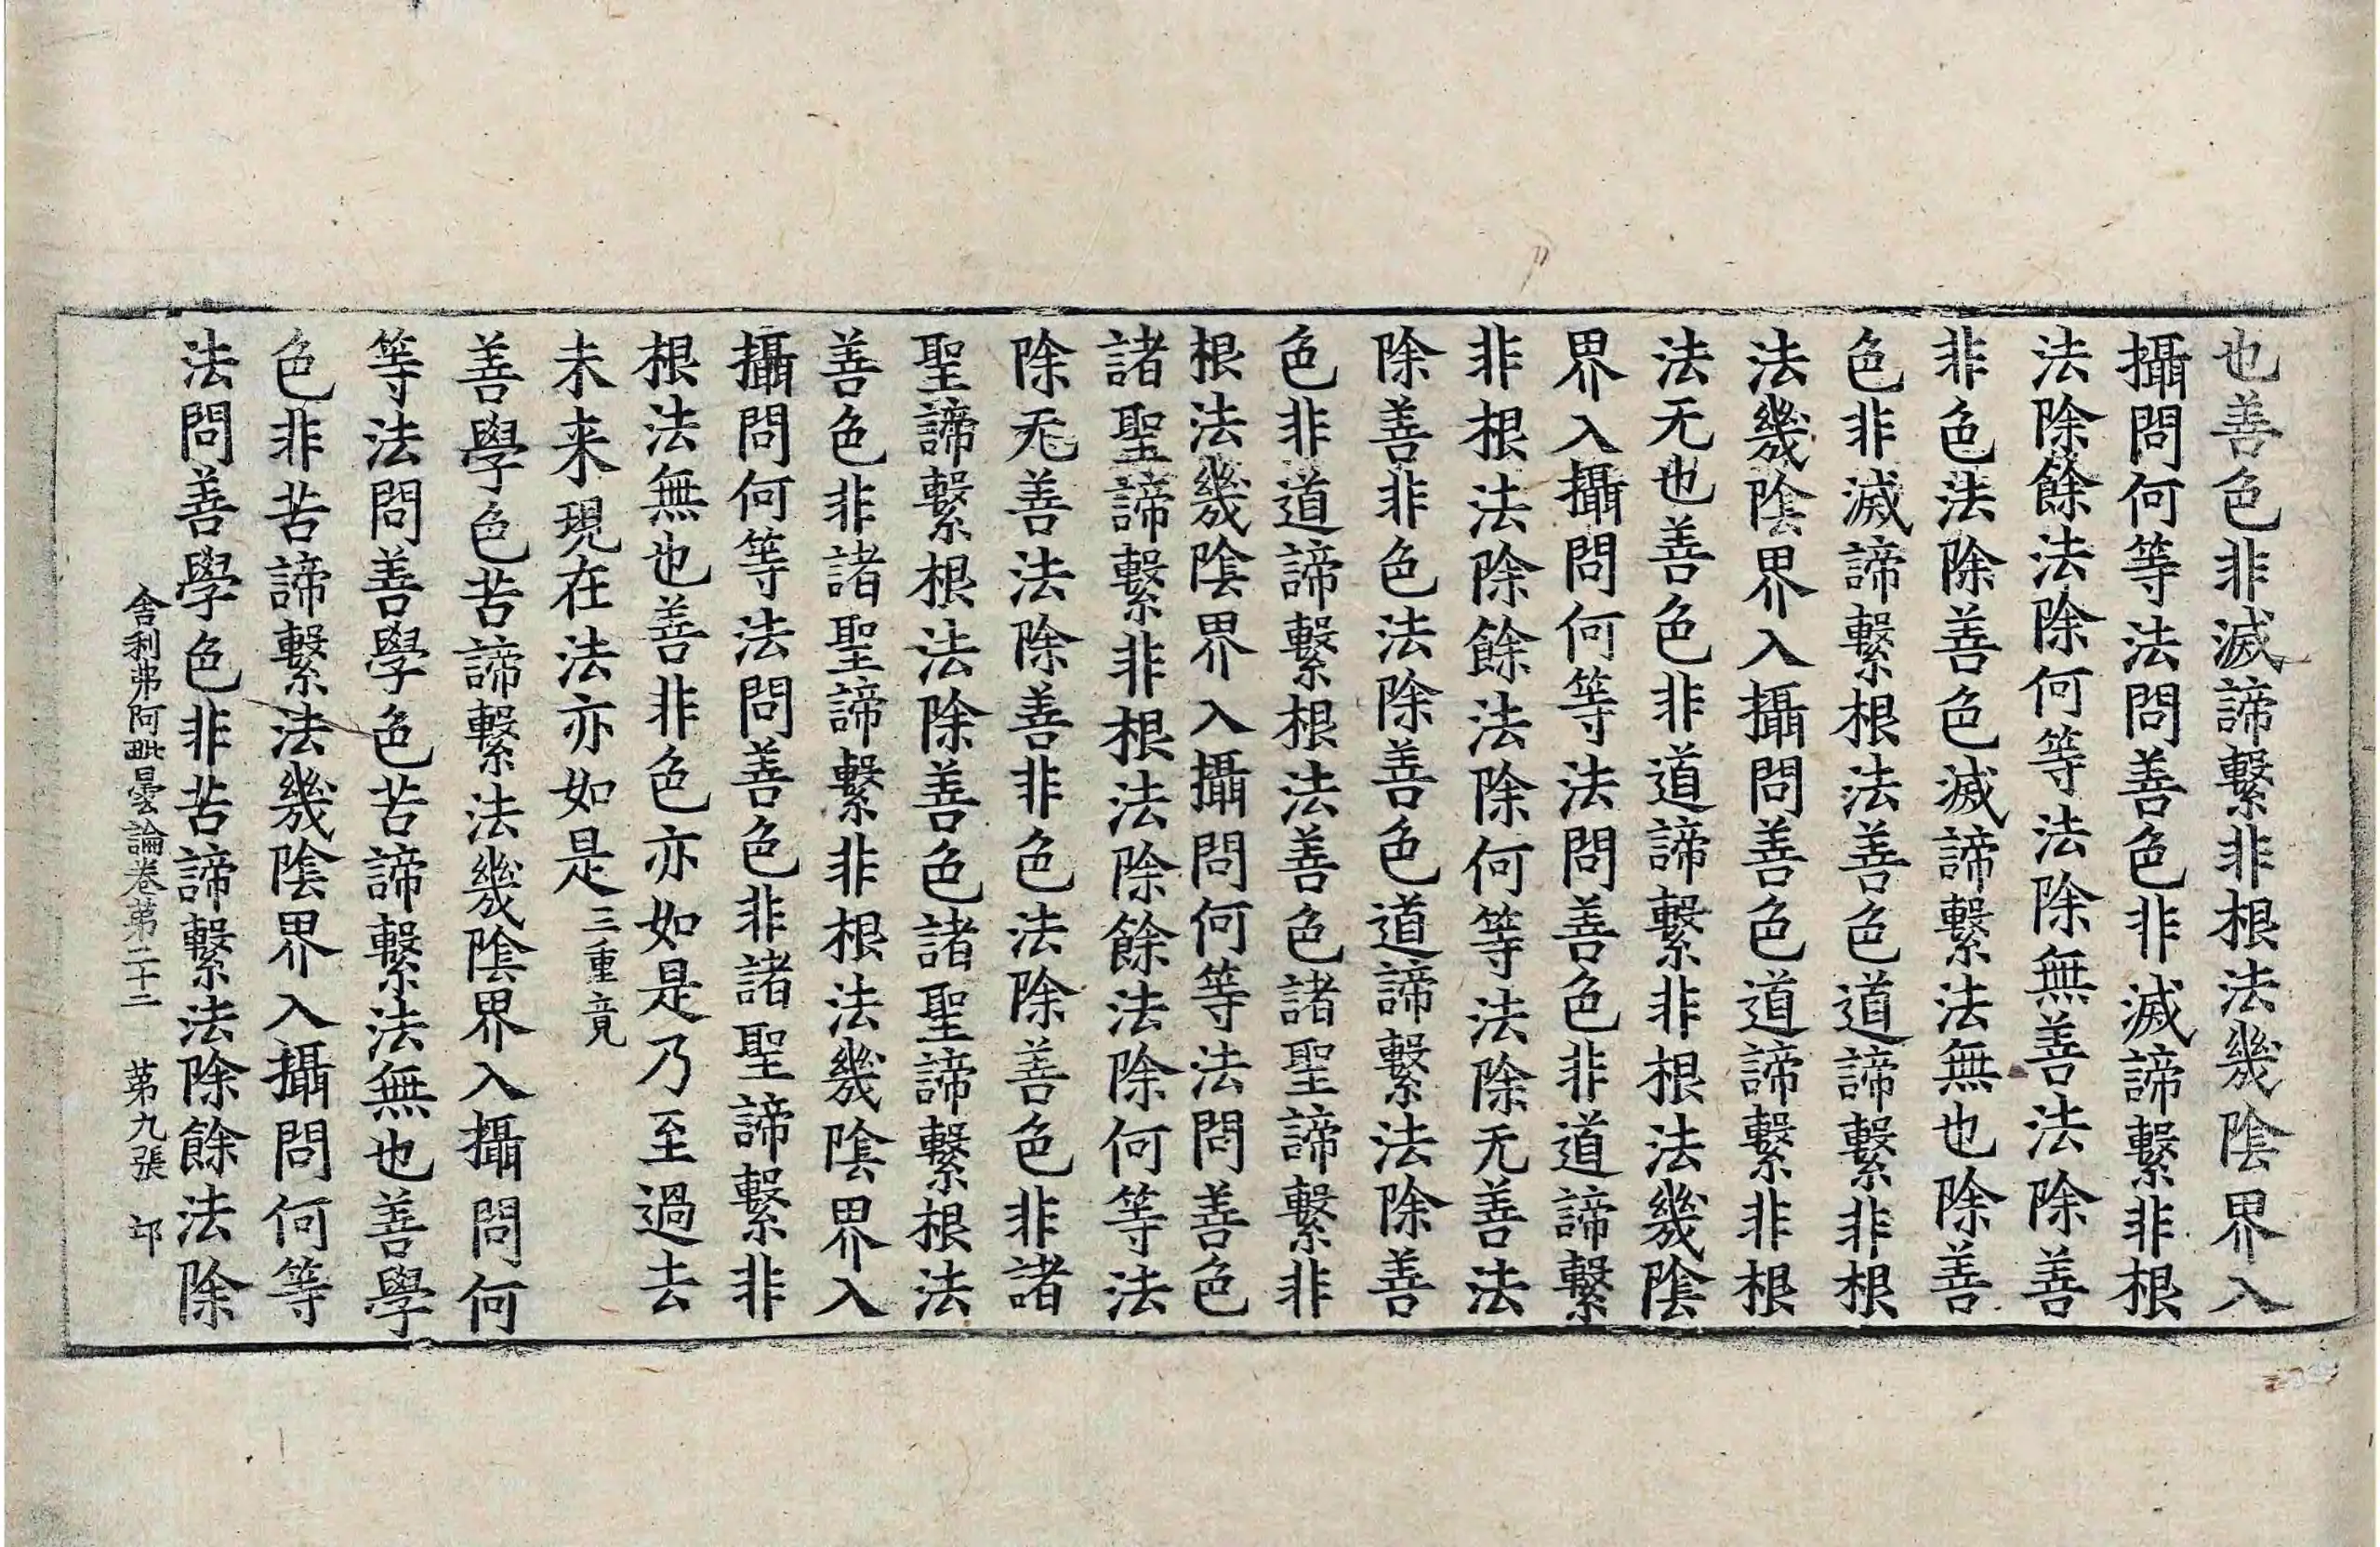 也善色非滅諦繫非根法幾陰界入
攝問何等法問善色非滅諦繫非根
法除餘法除何等法除無善法除善
非色法除善色滅諦繫法無也除善
色非滅諦繫根法善色道諦繫非根
法幾陰界入攝問善色道諦繫非根
法无也善色非道諦繫非根法幾陰
界入攝問何等法問善色非道諦繫
非根法除餘法除何等法除无善法
除善非色法除善色道諦繫法除善
色非道諦繫根法善色諸聖諦繫非
根法幾陰界入攝問何等法問善色
諸聖諦繫非根法除餘法除何等法
除无善法除善非色法除善色非諸
聖諦繫根法除善色諸聖諦繫根法
善色非諸聖諦繫非根法幾陰界入
攝問何等法問善色非諸聖諦繫非
根法無也善非色亦如是乃至過去
未来現在法亦如是三重竟
善學色苦諦繫法幾陰界入攝問何
等法問善學色苦諦繫法無也善學
色非苦諦繫法幾陰界入攝問何等
法問善學色非苦諦繫法除餘法除
舍利弗阿毗曇論卷第二十二 第九張 卭